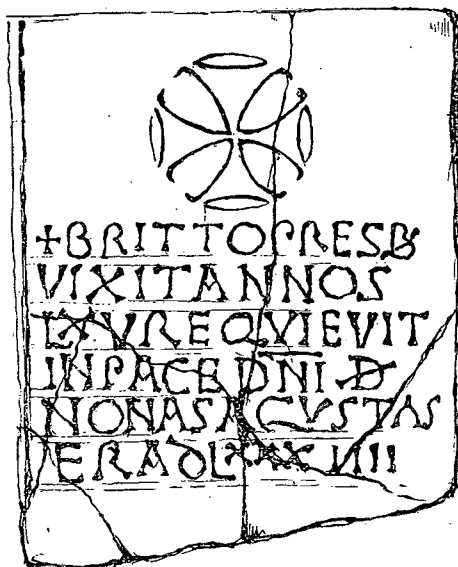 +BRITTO PRESB
VIXIT ANNOS
LXV REQVIEVIT
IN PACE DNI D
NONAS AGVSTAS
ERA DLXXXIIII